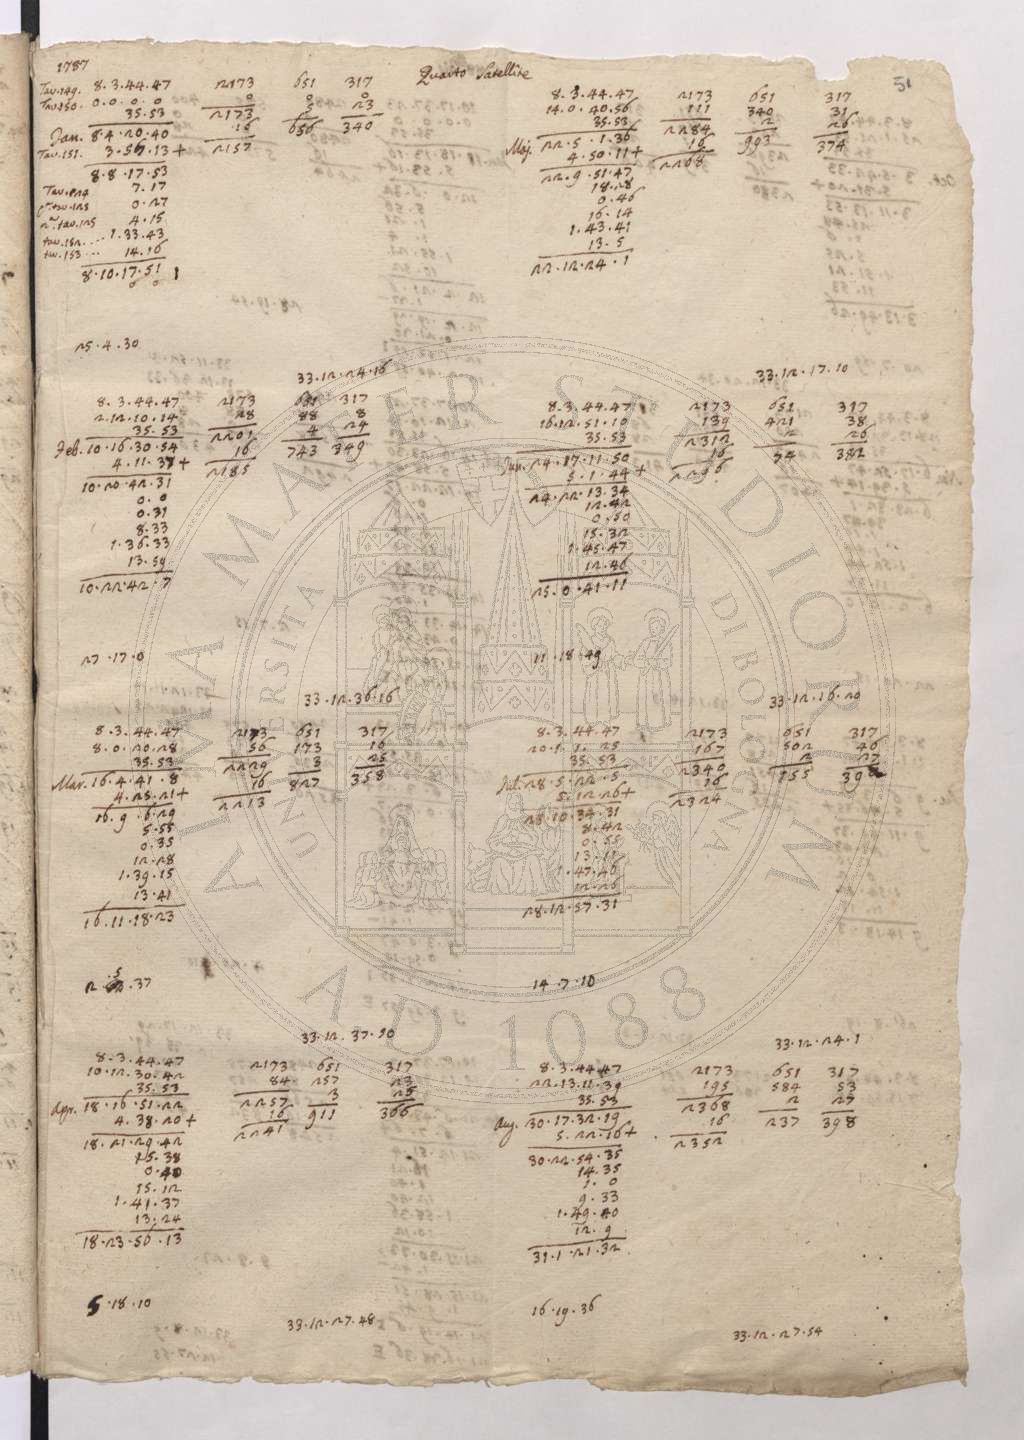 1787
Quarto Satellite
51
Tav.149. 8.3.44.47 2173 651 317
Tav.150. 0.0.0.0 0 0 0
35.53 2173 5 23
Jan. 8.4.20.40 16 656 340
Tav.151. 3.57.13+ 2157
8.8.17.53
7.17
0.27
4.15
tav.152.... 1.33.43
tav.153... 14.16
8.10.17.51
25.4.30
33.12.24.16
8.3.44.47 2173 651 317
2.12.10.14 28 88 8
35.53 2201 4 24
Feb. 10.16.30.54 16 743 349
4.11.37+ 2185
10.20.42.31
0.0
0.31
8.33
1.36.33
13.59
10.22.42.7
27.17.0
33.12.36.16
8.3.44.47 2173 651 317
8.0.20.28 56 173 16
35.53 2229 3 25
Mar. 16.4.41.8 16 827 358
4.25.21+ 2213
16.9.6.29
5.55
0.35
12.28
1.39.15
13.41
16.11.18.23
2.5.37
33.12.37.50
8.3.44.47 2173 651 317
10.12.30.42 84 257 23
35.53 2257 3 25
Apr. 18.16.51.22 16 911 365
4.38.20+ 2241
18.21.29.42
15.38
0.40
15.12
1.41.37
13.24
18.23.56.13
5.18.10
33.12.27.48
8.3.44.47 2173 651 317
14.0.40.56 111 340 31
35.53 2284 2 26
Maj. 22.5.1.36 16 993 374
4.50.11+ 2268
22.9.51.47
18.28
0.46
16.14
1.43.41
13.5
22.12.24.1
33.12.17.10
8.3.44.47 2173 651 317
16.12.51.10 139 421 38
35.53 2312 2 26
Jun. 24.17.11.50 16 74 382
5.1.44+ 2296
24.22.13.34
12.42
0.50
15.32
1.45.47
12.46
25.0.41.11
11.18.49
33.12.16.20
8.3.44.47 2173 651 317
20.1.1.25 167 502 46
35.53 2340 2 27
Jul. 28.5.22.5 16 155
5.12.26+ 2324
28.10.34.31
8.42
0.55
13.11
1.47.46
12.26
28.12.57.31
14.7.10
33.12.24.1
8.3.44.47 2173 651 317
22.13.11.39 195 584 53
35.53 2368 2 27
Aug. 30.17.32.19 16 237 398
5.22.16+ 2352
30.22.54.35
14.35
1.0
9.33
1.49.40
12.9
31.1.21.32
16.19.36
33.12.27.54
ALMA MATER STUDIORUM
UNIVERSITÀ DI BOLOGNA
A.D. 1088